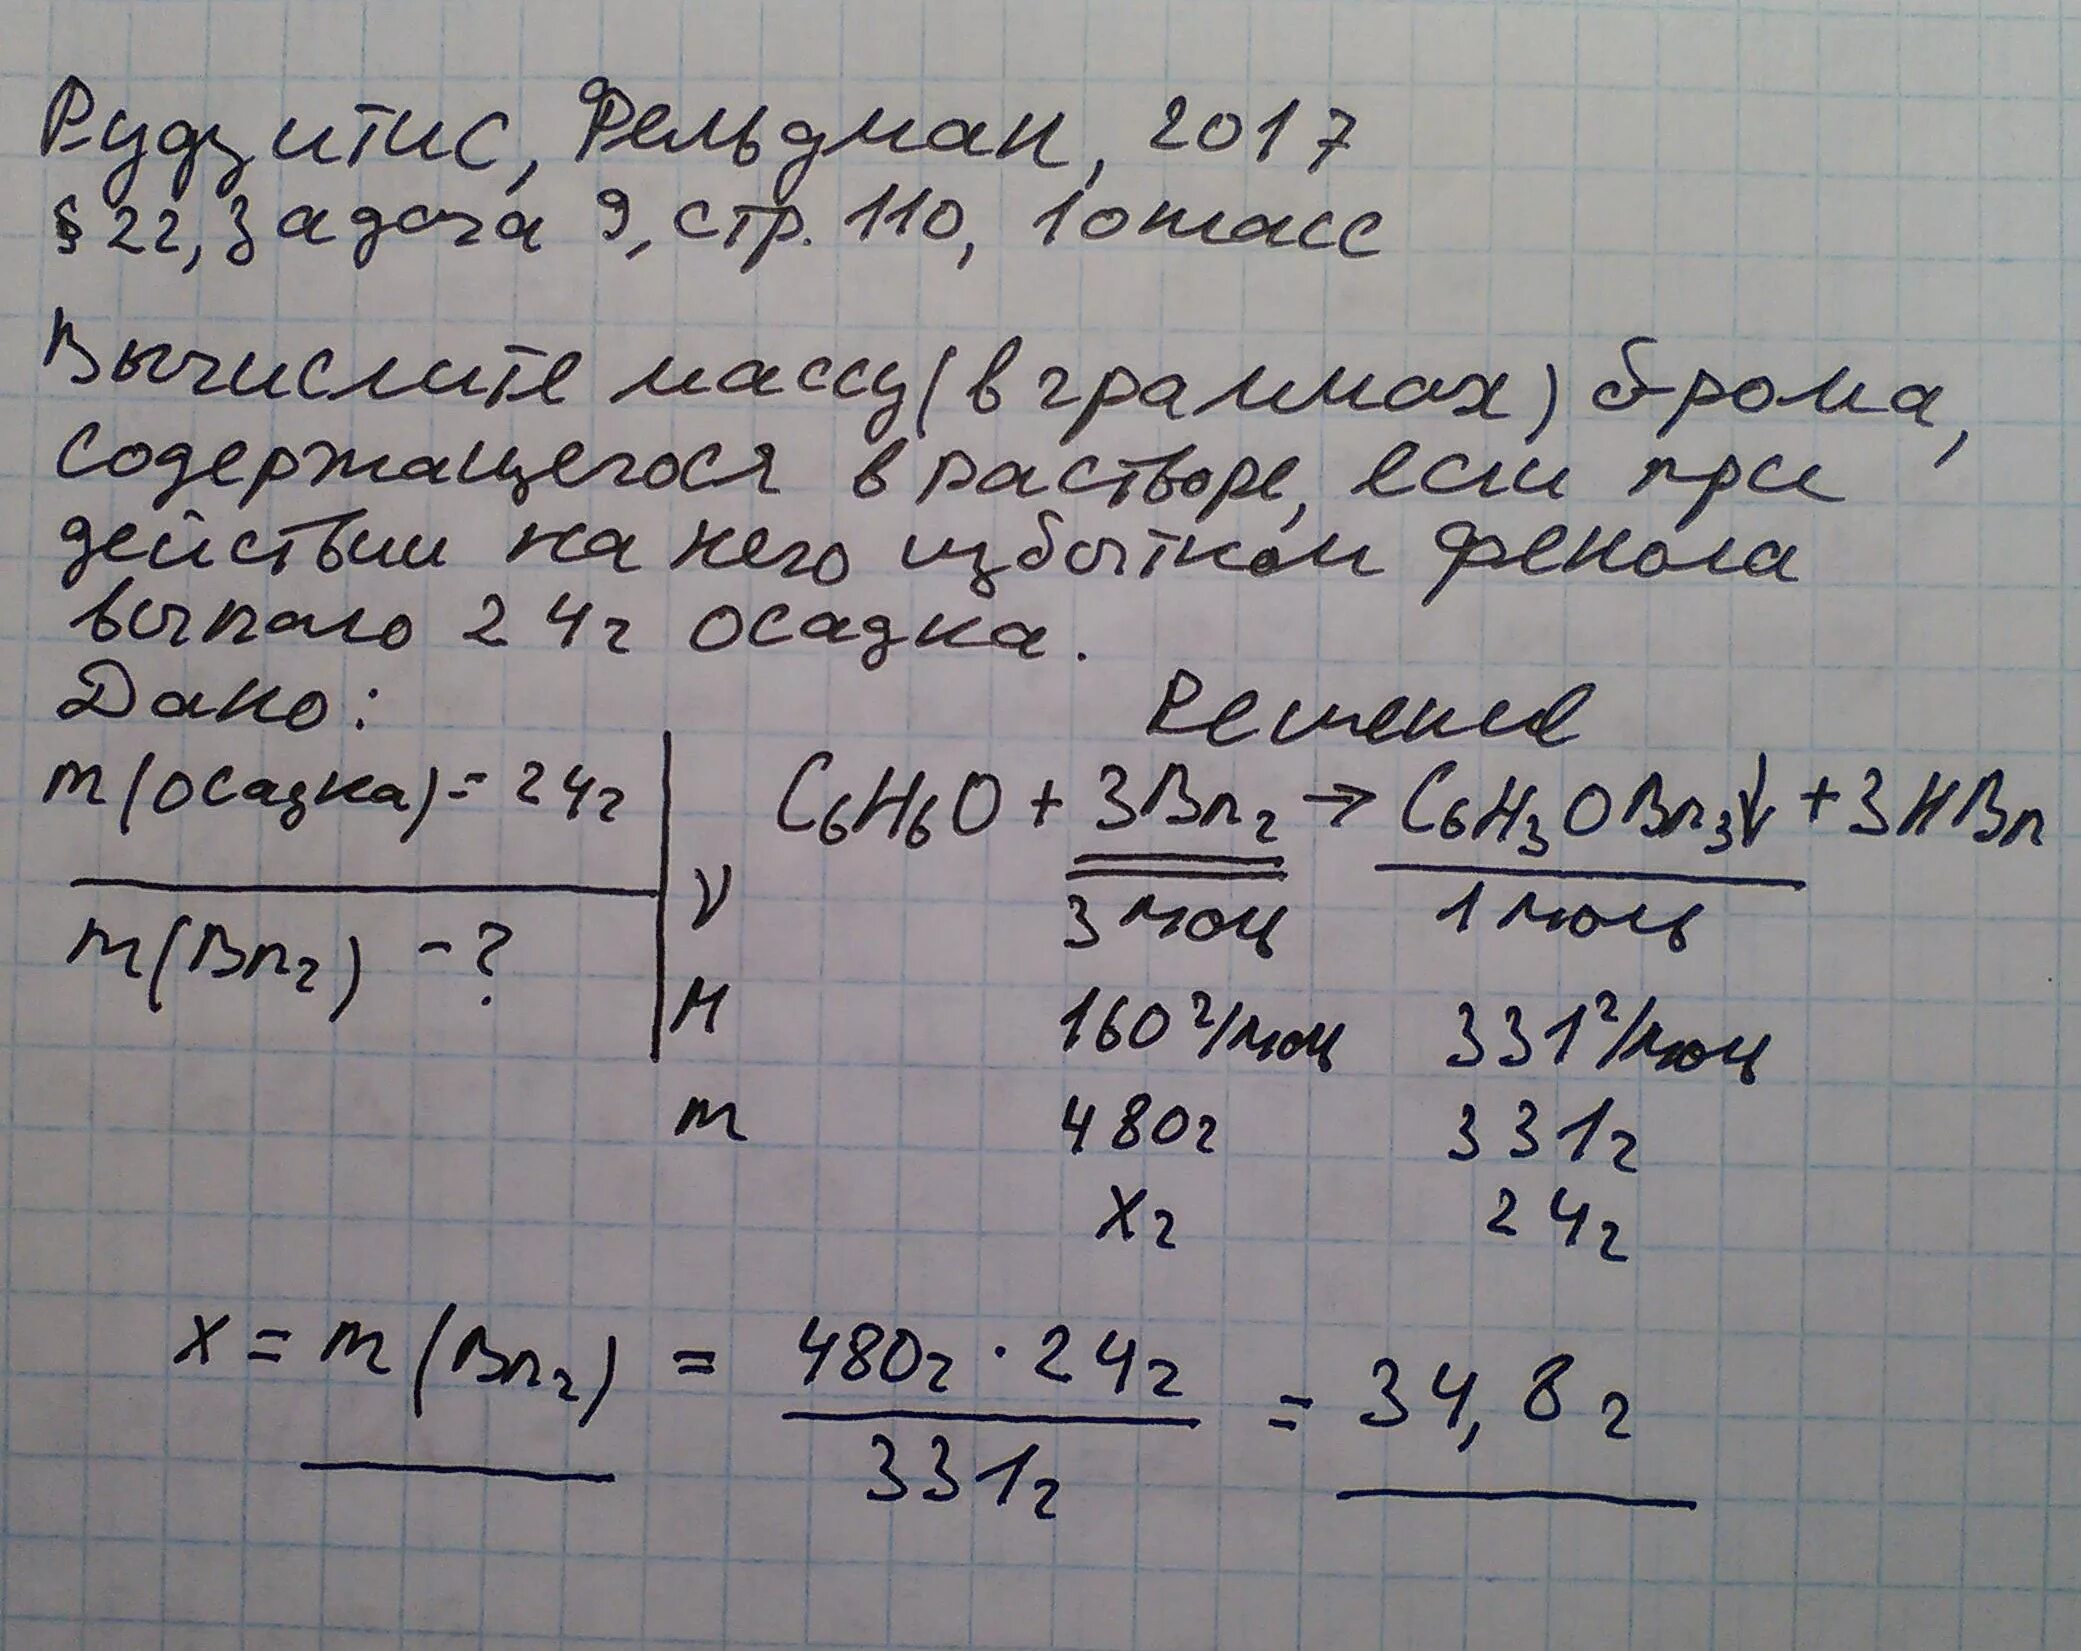 Рудзитис, Фельдман, 2017
§ 22, Задача 9, стр. 110, 10 класс
Вычислите массу (в граммах) брома,
содержащегося в растворе, если при
действии на него избытком фенола
выпало 24г осадка.
Дано: Решение
m(осадка) = 24г C₆H₆O + 3Br₂ → C₆H₃OBr₃↓ + 3HBr
ν 3 моль 1 моль
m(Br₂) - ?
M 160 г/моль 331 г/моль
m 480г 331г
x г 24г
x = m(Br₂) = 480г · 24г / 331г = 34,8г